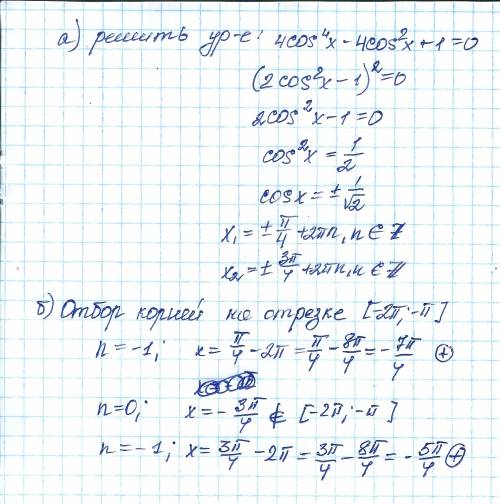 а) решить ур-е: 4cos⁴x - 4cos²x + 1 = 0
(2cos²x - 1)² = 0
2cos²x - 1 = 0
cos²x = 1/2
cosx = ± 1/√2
x₁ = ± π/4 + 2πn, n ∈ Z
x₂ = ± 3π/4 + 2πn, n ∈ Z
б) Отбор корней на отрезке [-2π; -π]
n = -1; x = π/4 - 2π = π/4 - 8π/4 = - 7π/4 ⊕
n = 0; x = - 3π/4 ∉ [-2π; -π]
n = -1; x = 3π/4 - 2π = 3π/4 - 8π/4 = - 5π/4 ⊕